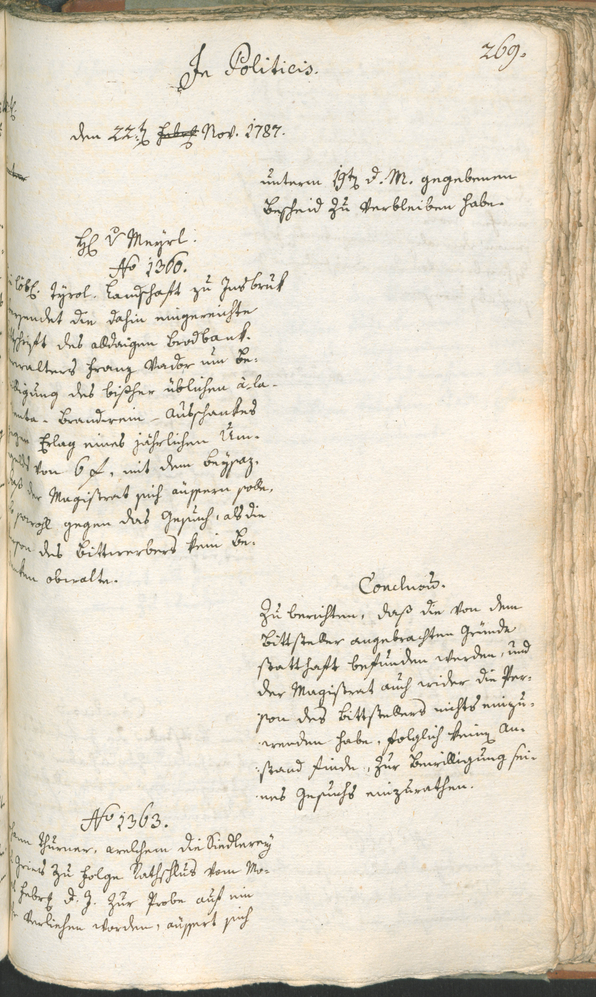 In Politicis.
269.
den 22t Febr Nov. 1787.
unterm 19t d. M. gegebenen
Bescheid zu verbleiben habe.
H v Meyrl.
No 1360.
löbl. Tyrol. Landschaft zu Insbruk
sendet die dahin eingereichte
schrift des aldaigen Brodbank-
walters Franz Vadar um Be-
ligung des bisher üblichen a la
Brandwein-Ausschankes
gegen Erlag eines jährlichen Um-
gelds von 6 f, mit dem Beysaz,
daß der Magistrat sich äussern solle,
sowohl gegen das Gesuch, als die
son des Bittwerbers kein Be-
ken obwalte.
Conclusum.
Zu berichten, daß die von dem
Bittsteller angebrachten Gründe
statthaft befunden werden, und
der Magistrat auch wider die Per-
son des Bittstellers nichts einzu-
wenden habe, folglich keinen An-
stand finde, zur Bewilligung sei-
nes Gesuchs einzurathen.
No 1363.
Thurner, welchem die Siedlerey
Gries zu Folge Rathschlus vom
Febr d. J. zur Probe auf ein
verliehen worden, äussert sich